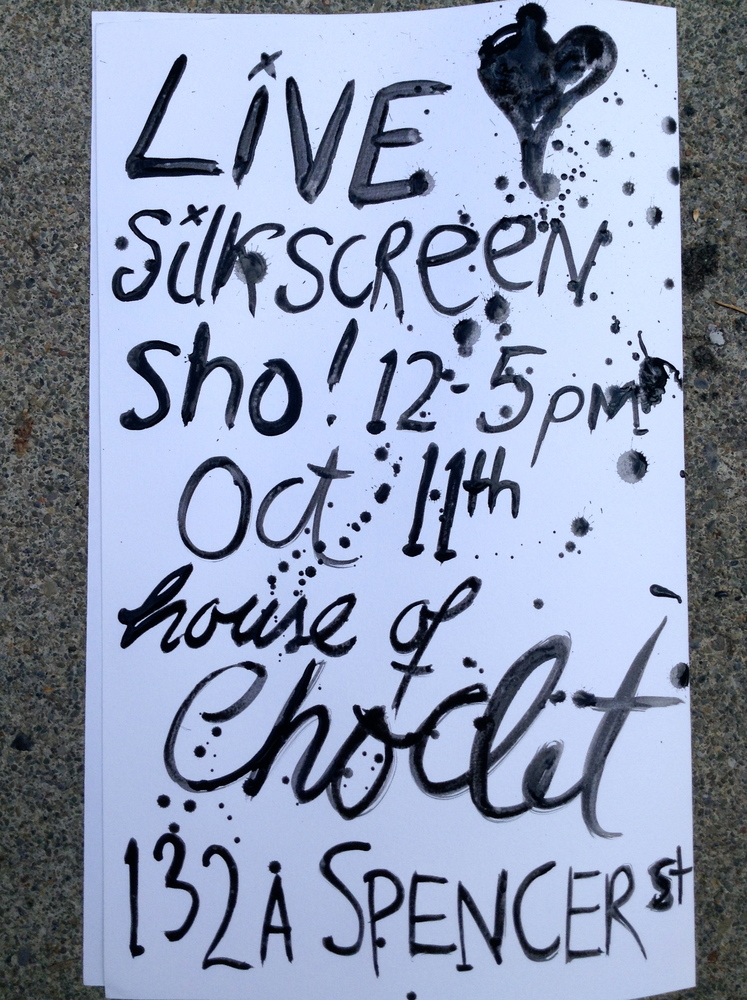 LiVE
Silkscreen
Sho! 12-5pm
Oct 11th
house of
Choclet
132A SPENCER St